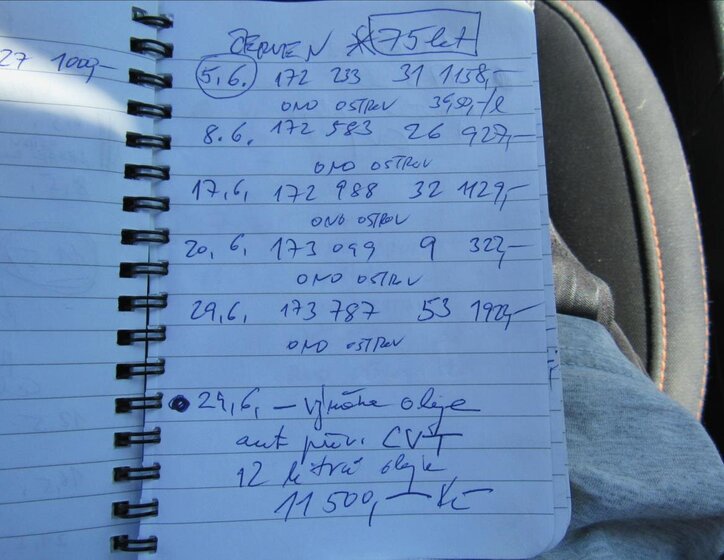 27 1000,-
ČERVEN * 75 let
5.6. 172 233 31 1138,-
ONO OSTROV /l
8.6. 172 583 26 927,-
ONO OSTROV
17.6. 172 988 32 1129,-
ONO OSTROV
20.6. 173 099 9 322,-
ONO OSTROV
29.6. 173 787 53 1922,-
ONO OSTROV
29.6. - výměna oleje
aut. přev. CVT
12 litrů oleje
11 500,- Kč